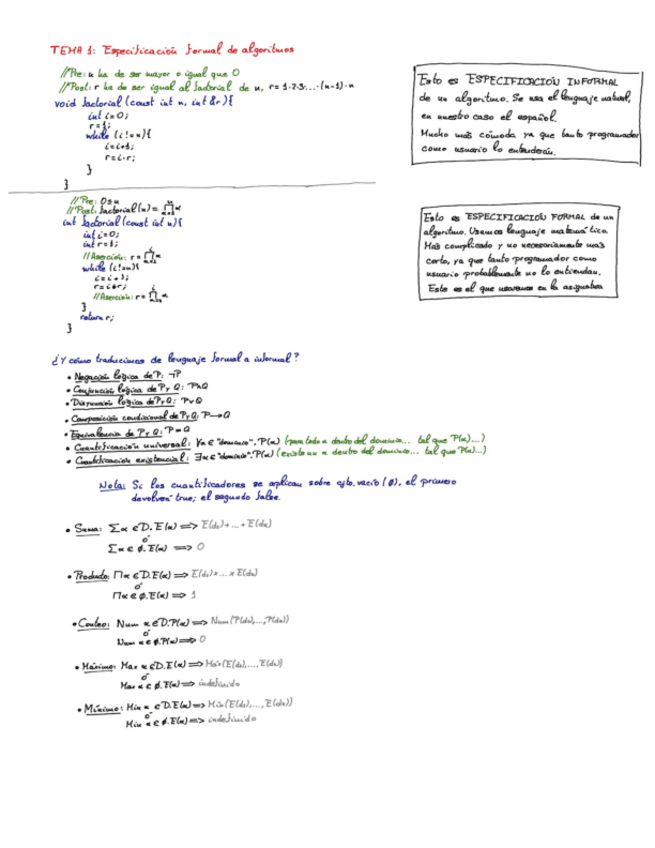 TEMA 1: Especificación formal de algoritmos
//Pre: n ha de ser mayor o igual que 0
//Post: r ha de ser igual al factorial de n, r=1·2·3·...·(n-1)·n
void factorial (const int n, int &r){
int i=0;
r=1;
while (i!=n){
i=i+1;
r=i·r;
}
}
Esto es ESPECIFICACIÓN INFORMAL
de un algoritmo. Se usa el lenguaje natural,
en nuestro caso el español.
Mucho más cómoda ya que tanto programador
como usuario lo entenderán.
//Pre: 0≤n
//Post: factorial(n) = ∏α
int factorial (const int n){
int i=0;
int r=1;
//Aserción: r= ∏α
while (i!=n){
i=i+1;
r=i*r;
//Aserción: r= ∏α
}
return r;
}
Esto es ESPECIFICACIÓN FORMAL de un
algoritmo. Usamos lenguaje matemático.
Más complicado y no necesariamente más
corto, ya que tanto programador como
usuario probablemente no lo entiendan.
Este es el que usaremos en la asignatura
¿Y cómo traducimos de lenguaje formal a informal?
• Negación lógica de P: ¬P
• Conjunción lógica de P y Q: P∧Q
• Disyunción lógica de P y Q: P∨Q
• Composición condicional de P y Q: P→Q
• Equivalencia de P y Q: P=Q
• Cuantificación universal: ∀α∈"dominio".P(α) (para todo α dentro del dominio... tal que P(α)...)
• Cuantificación existencial: ∃α∈"dominio".P(α) (existe un α dentro del dominio... tal que P(α)...)
Nota: Si los cuantificadores se aplican sobre cjto. vacío (∅), el primero
devolverá true; el segundo false.
• Suma: ∑α∈D.E(α) ⟹ E(d₁)+...+E(dₙ)
ó
∑α∈∅.E(α) ⟹ 0
• Producto: ∏α∈D.E(α) ⟹ E(d₁)×...×E(dₙ)
ó
∏α∈∅.E(α) ⟹ 1
• Conteo: Num α∈D.P(α) ⟹ Num(P(d₁),...,P(dₙ))
ó
Num α∈∅.P(α) ⟹ 0
• Máximo: Max α∈D.E(α) ⟹ Máx(E(d₁),...,E(dₙ))
ó
Max α∈∅.E(α) ⟹ indefinido
• Mínimo: Min α∈D.E(α) ⟹ Mín(E(d₁),...,E(dₙ))
ó
Min α∈∅.E(α) ⟹ indefinido